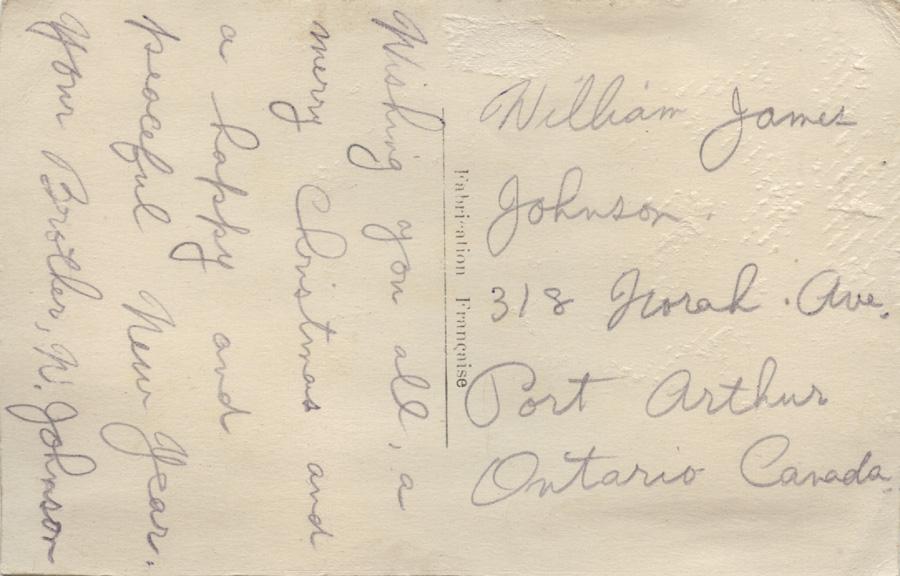 Wishing you all, a
merry Christmas and
a happy and
peaceful New Year.
Your Brother, N. Johnson
Fabrication Française
William James
Johnson.
318 Norah. Ave.
Port Arthur
Ontario Canada.